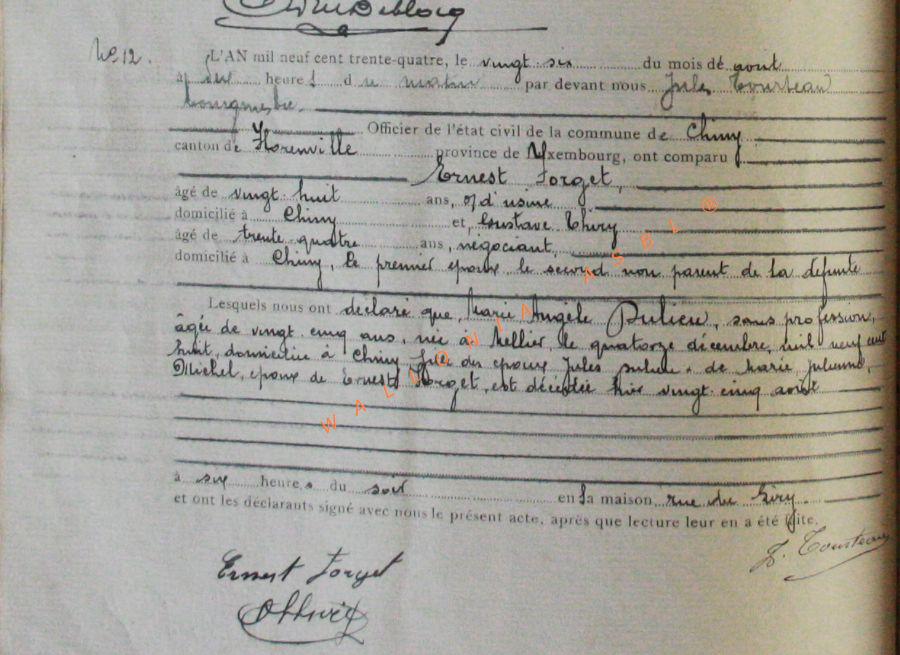 No 12.
L'AN mil neuf cent trente-quatre, le vingt six du mois de août
à dix heures du matin par devant nous Jules Tourteau
bourgmestre.
Officier de l'état civil de la commune de Chiny
canton de Florenville province de Luxembourg, ont comparu
Ernest Forget,
âgé de vingt huit ans, d'usine
domicilié à Chiny et, Gustave Thiry
âgé de trente quatre ans, négociant,
domicilié à Chiny, le premier époux le second non parent de la défunte
Lesquels nous ont déclaré que, Marie Angèle Dulieu, sans profession,
âgée de vingt cinq ans, née à Mellier, le quatorze décembre, mil neuf cent
huit, domiciliée à Chiny fille des époux Jules Dulieu & de Marie, Julienne,
Michel, épouse de Ernest Forget, est décédée hier vingt cinq août
à six heures du soir en sa maison rue du
et ont les déclarants signé avec nous le présent acte, après que lecture leur en a été faite.
J. Tourteau
Ernest Forget
WALLONIA ASBL ®